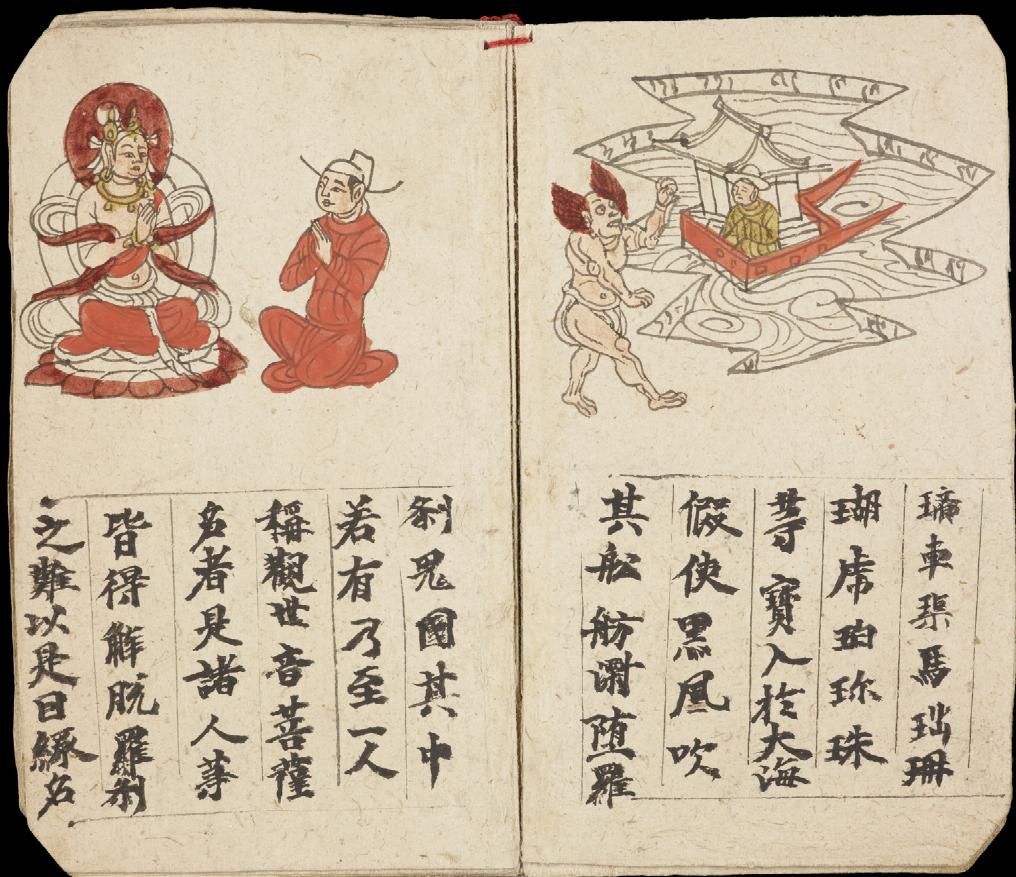 璃車渠馬瑙珊
瑚虎珀珎珠
等寶入於大海
假使黑風吹
其舩舫漂堕羅
剎鬼國其中
若有乃至一人
稱觀世音菩薩
名者是諸人等
皆得解脱羅剎
之難以是因緣名